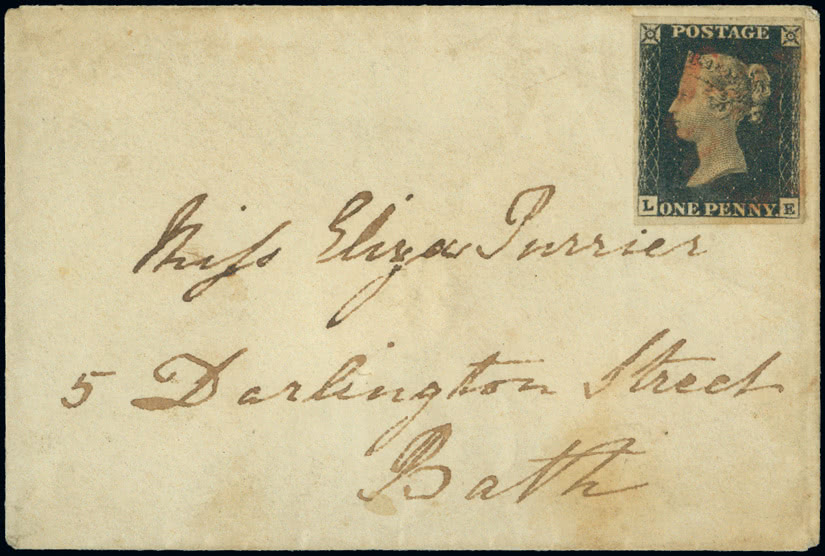 POSTAGE
L ONE PENNY. E
Miss Eliza Purrier
5 Darlington Street
Bath